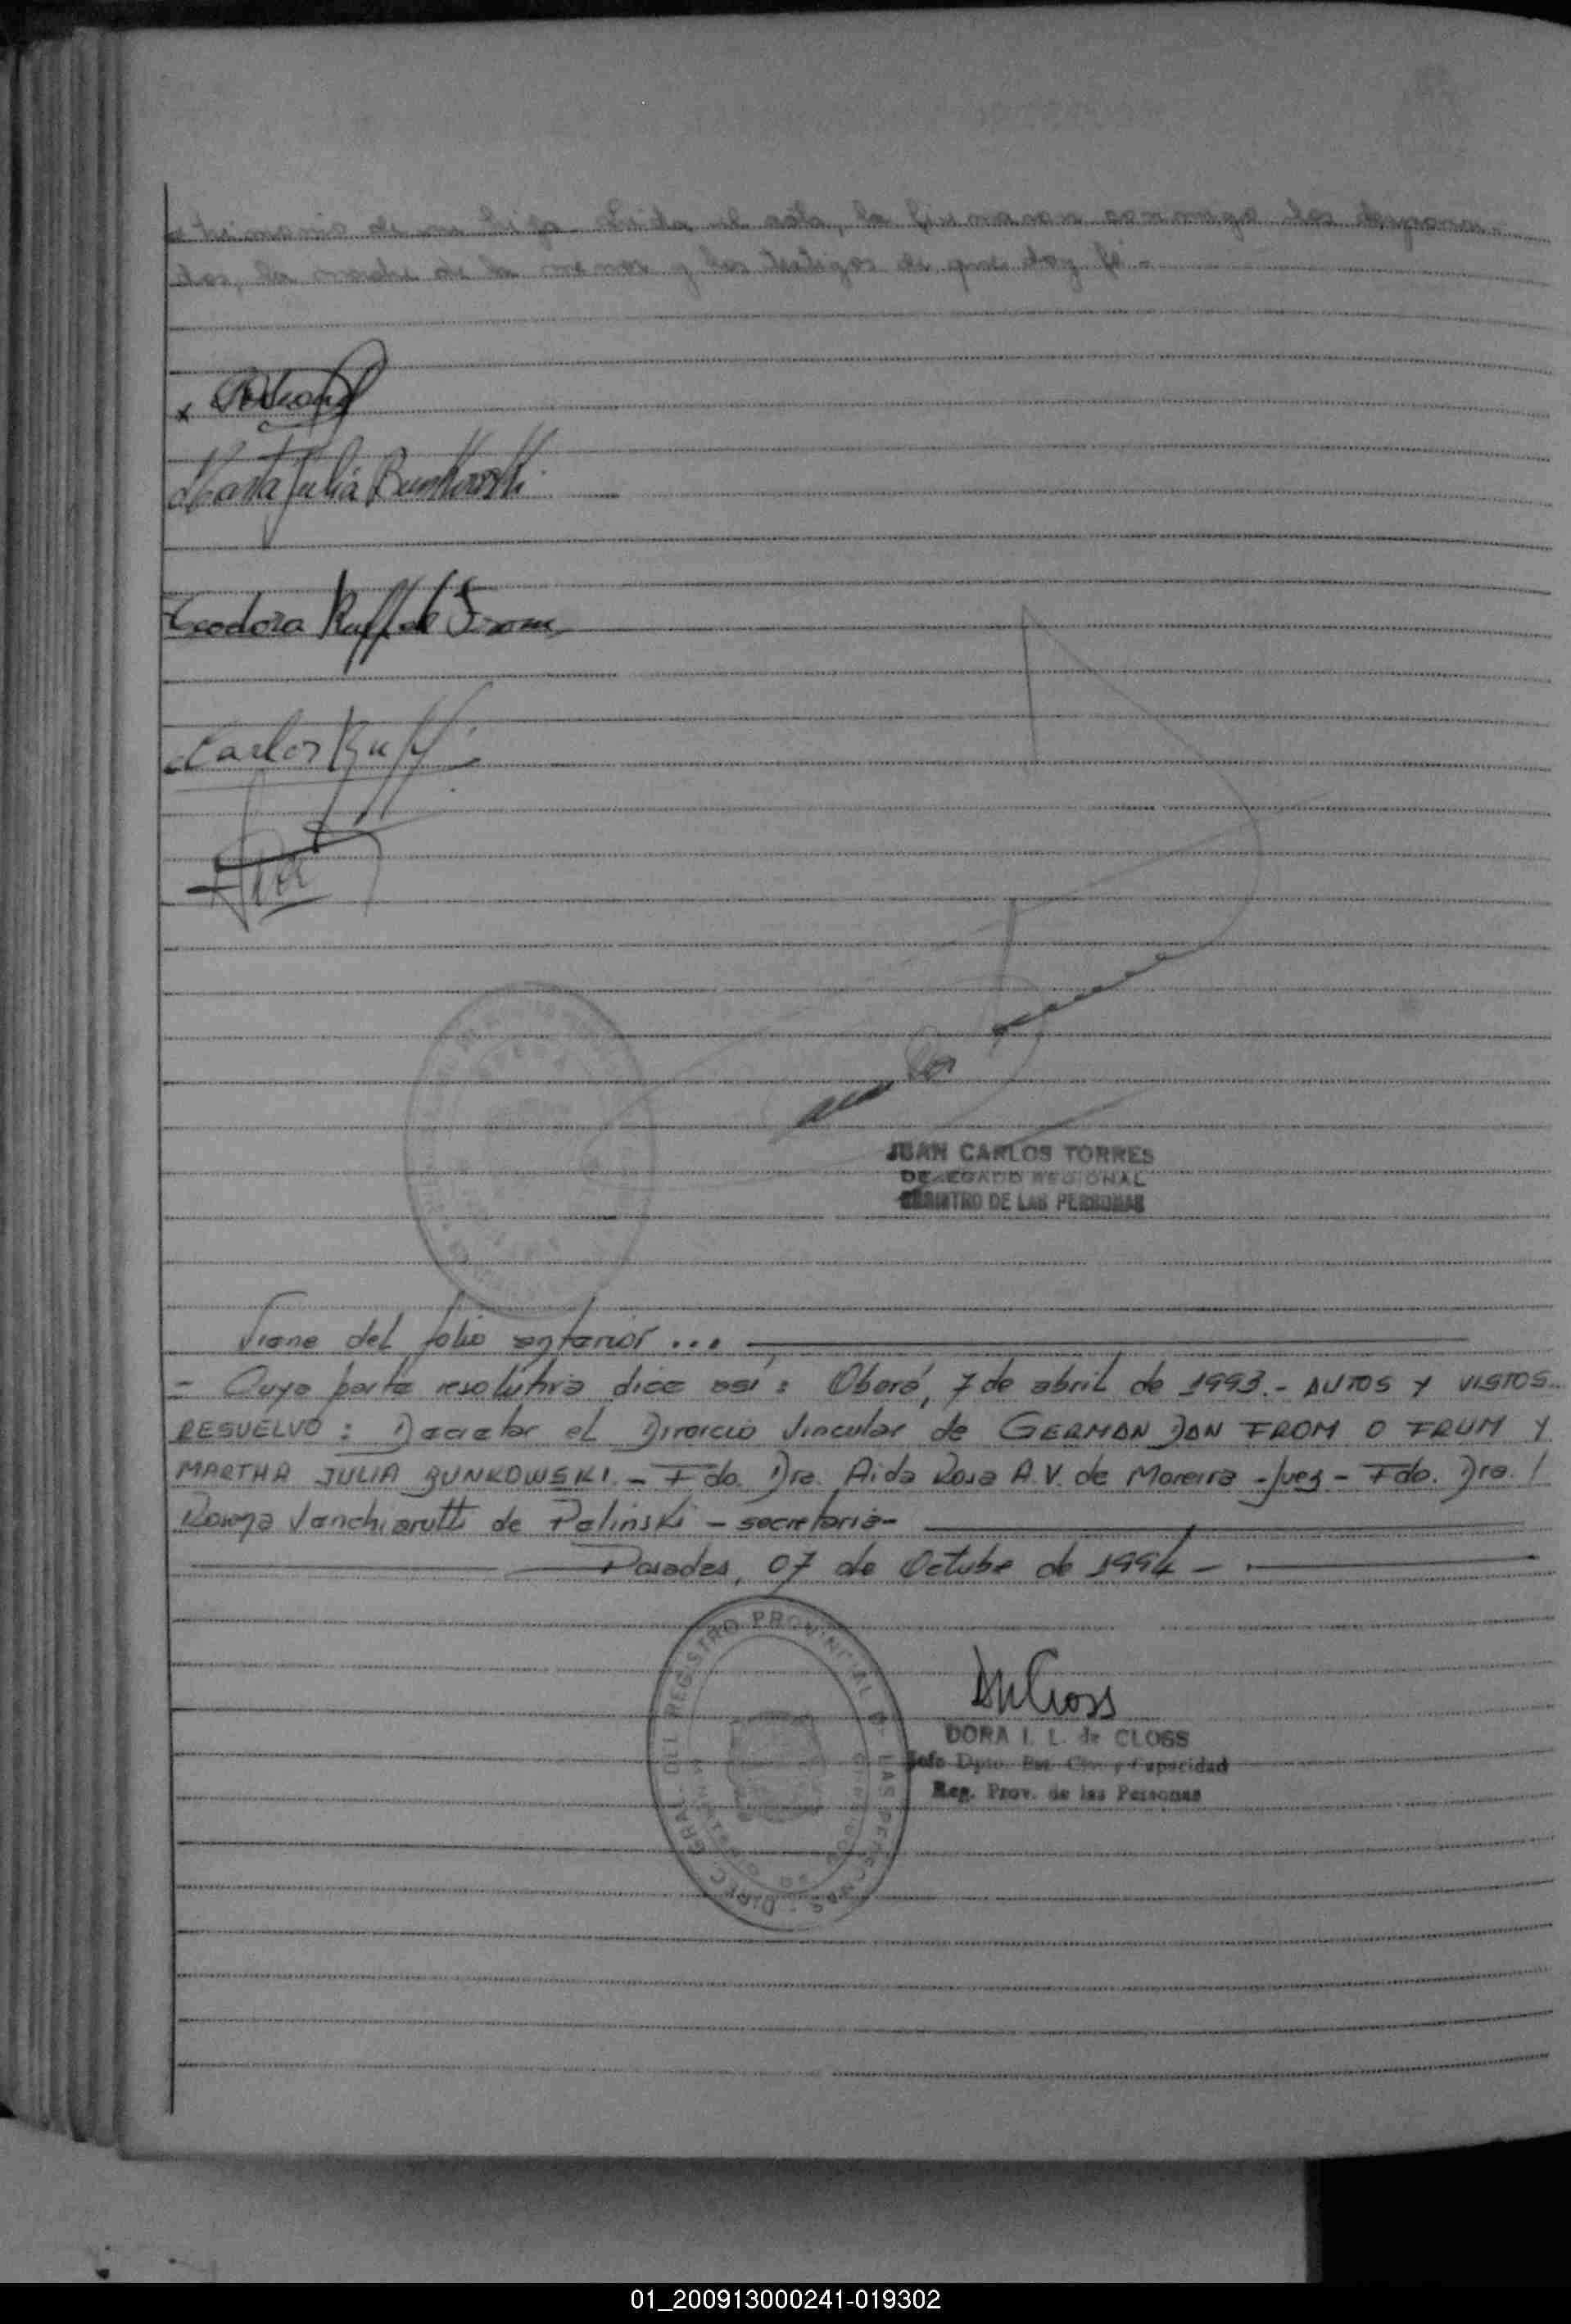 tos, la madre de la menor y los testigos de que doy fé.-
x
Marta Julia Bunkowski
Teodora Ruff de From
Carlos Ruff
JUAN CARLOS TORRES
DELEGADO REGIONAL
REGISTRO DE LAS PERSONAS
Viene del folio anterior ...
- Cuya parte resolutiva dice así: Oberá, 7 de abril de 1993.- AUTOS Y VISTOS..
RESUELVO: Decretar el Divorcio Vincular de GERMAN DAN FROM O FRUM Y
MARTHA JULIA BUNKOWSKI.- Fdo. Dra. Aida Rosa A.V. de Moreira -Juez- Fdo. Dra. /
Vanchiarutti de Palinski - secretaria-
Posadas, 07 de Octubre de 1994-
DIREC. GRAL. DEL REGISTRO PROVINCIAL DE LAS PERSONAS
DORA I. L. de CLOSS
Jefe Dpto. Est. Civ. y Capacidad
Reg. Prov. de las Personas
01_200913000241-019302